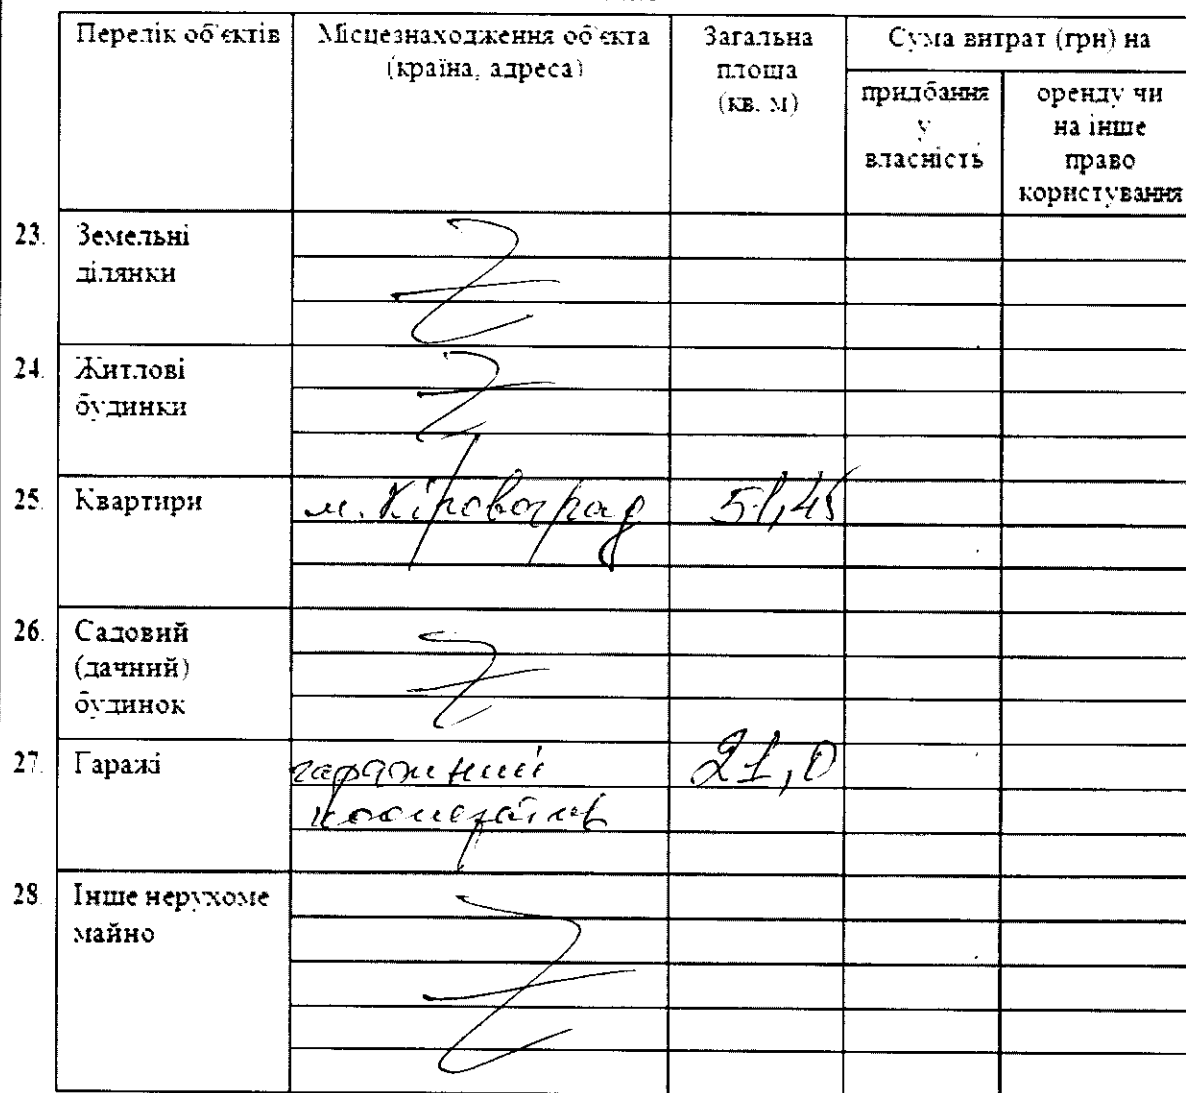 Перелік об'єктів
Місцезнаходження об'єкта
(країна, адреса)
Загальна
площа
(кв. м)
Сума витрат (грн) на
придбання
у
власність
оренду чи
на інше
право
користування
23. Земельні
ділянки
24. Житлові
будинки
25. Квартири м. Кіровоград 51,45
26. Садовий
(дачний)
будинок
27. Гаражі гаражний 21,0
кооператив
28. Інше нерухоме
майно